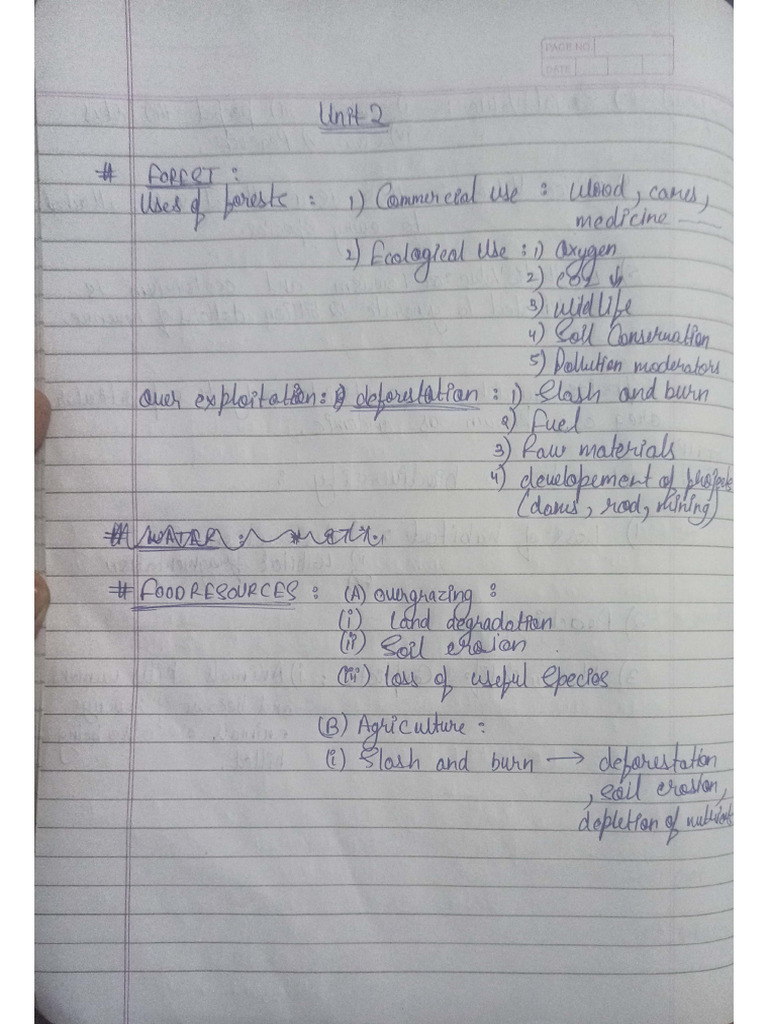 PAGE NO.
DATE
Unit 2
# FOREST :
Uses of forests : 1) Commercial use : Wood, canes,
medicine
2) Ecological Use : 1) Oxygen
2) CO2 ↓
3) Wildlife
4) Soil Conservation
5) Pollution moderators
Over exploitation : deforestation : 1) Slash and burn
2) Fuel
3) Raw materials
4) developement of projects
(dams, rod, mining)
# WATER :
# FOOD RESOURCES : (A) overgrazing :
(i) land degradation
(ii) Soil erosion
(iii) loss of useful species
(B) Agriculture :
(i) Slash and burn → deforestation
, soil erosion,
depletion of nutrient